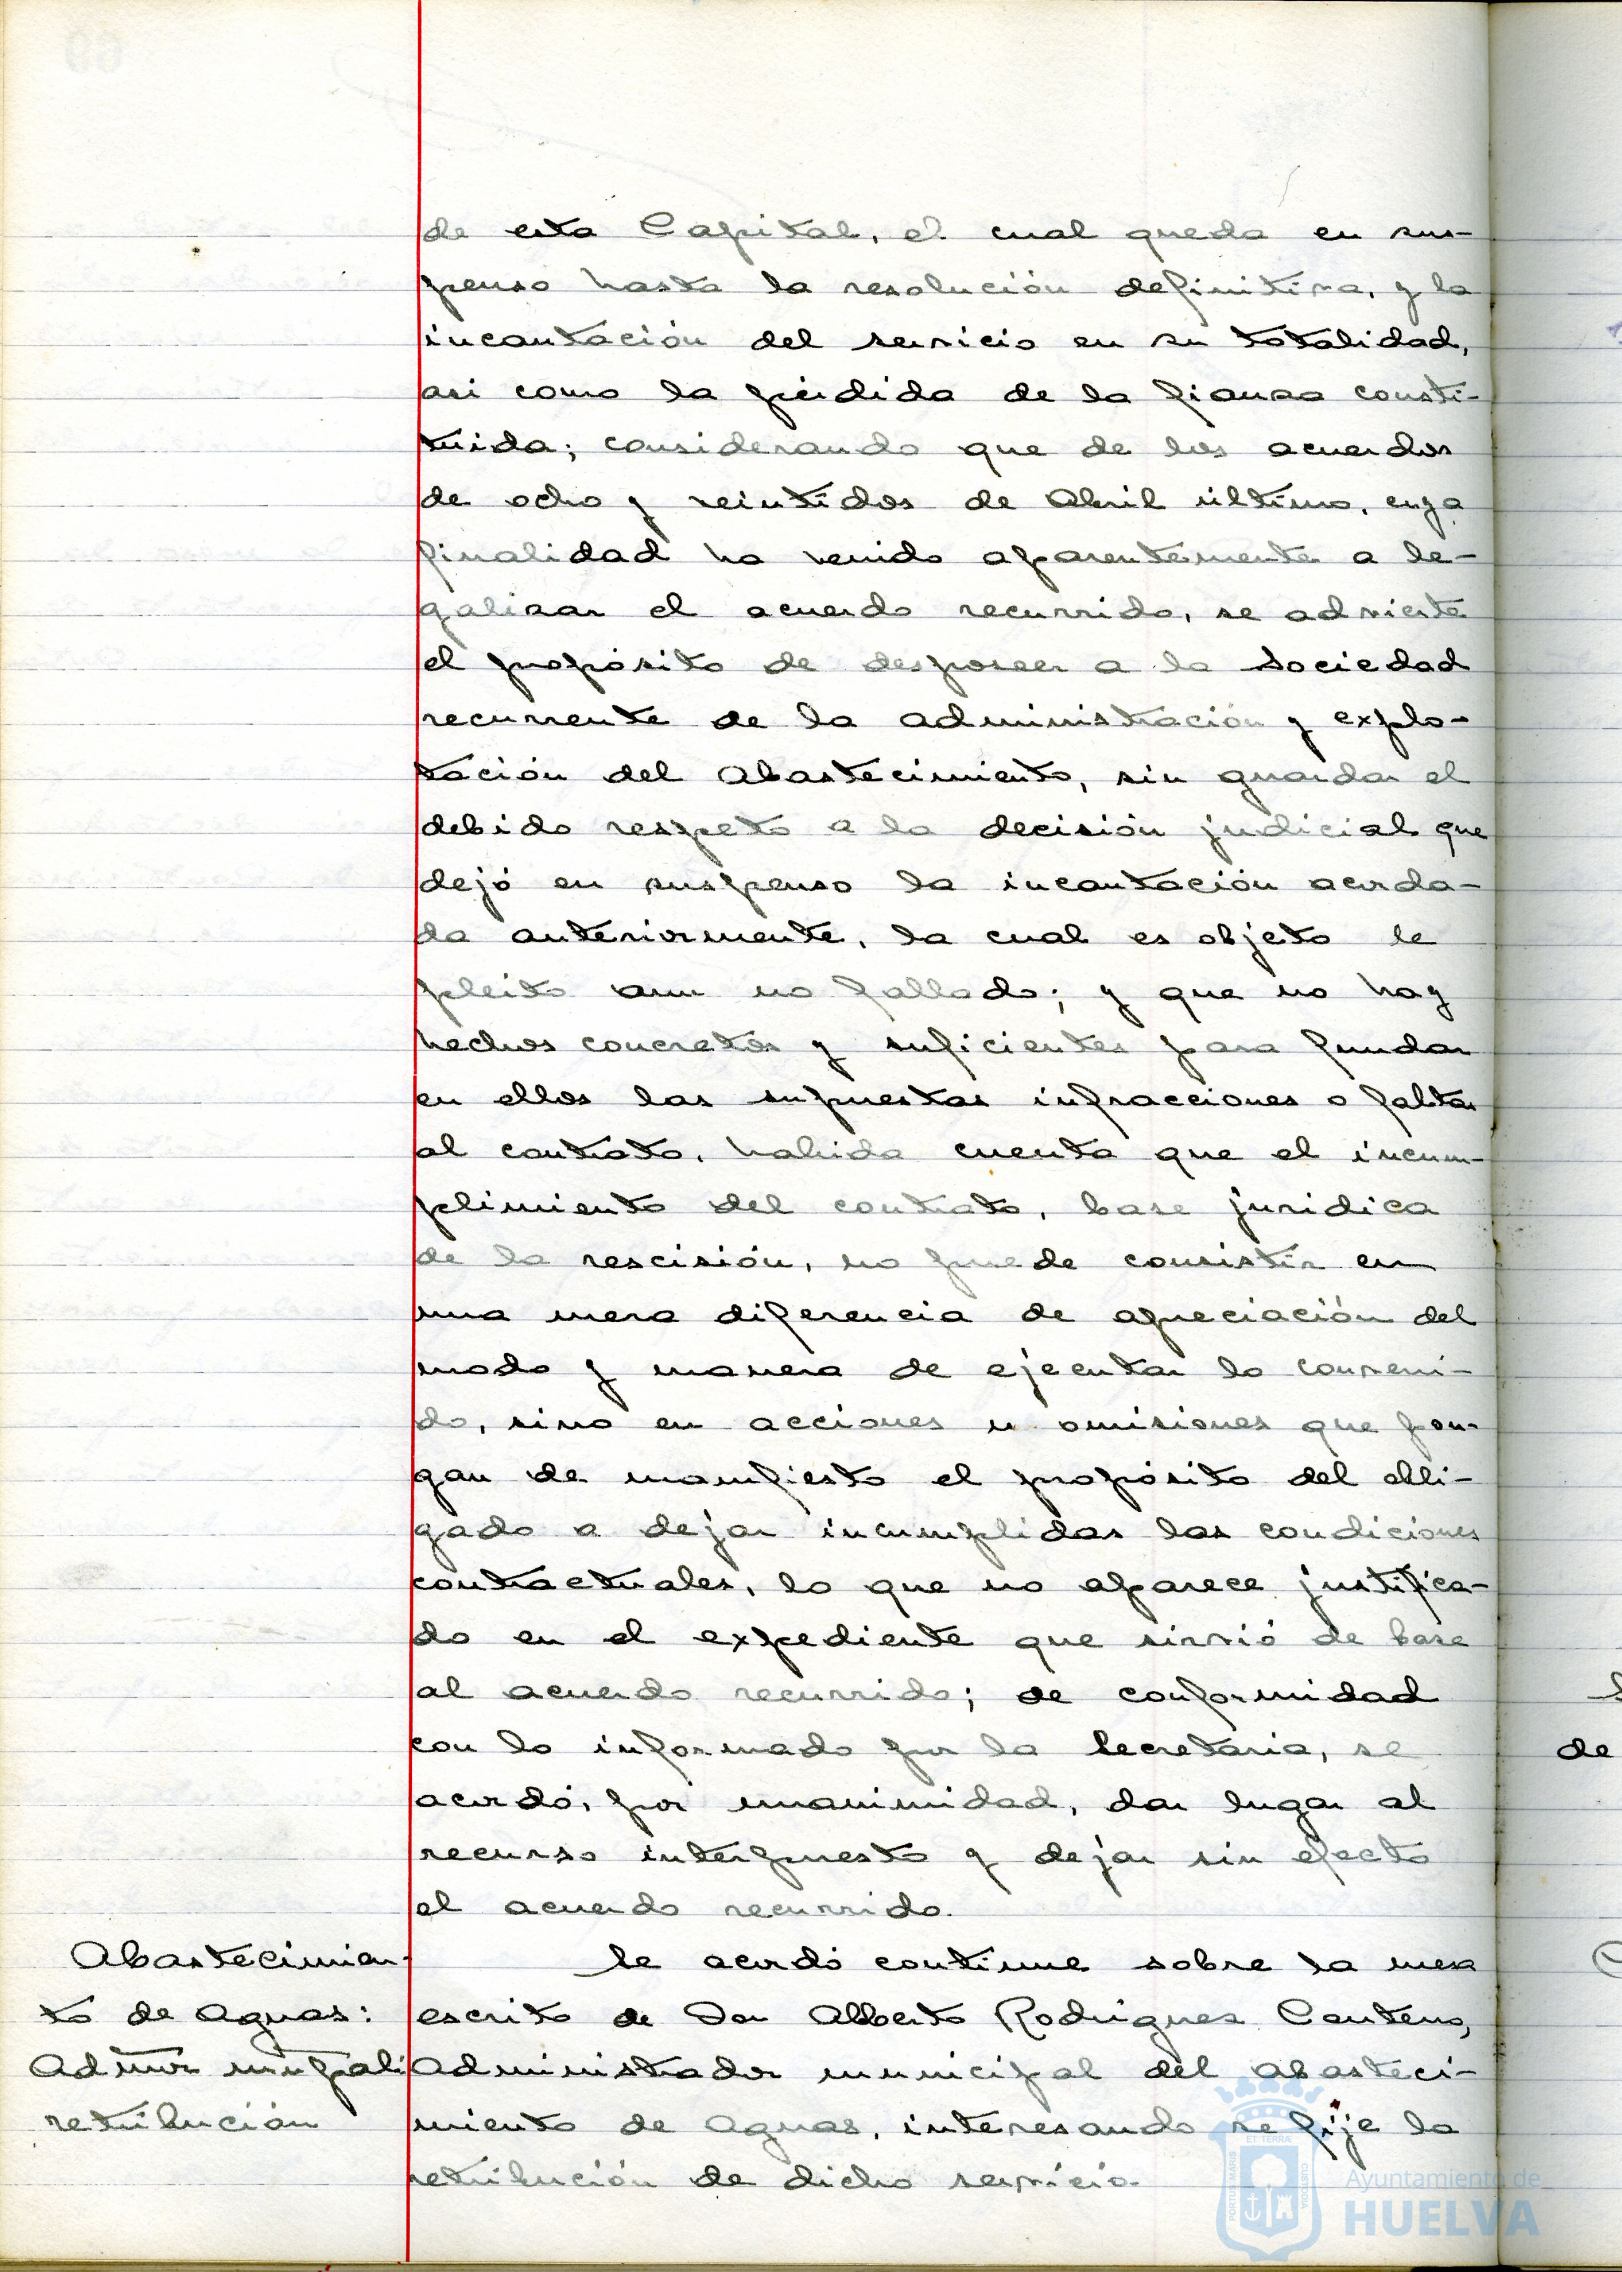 de esta Capital, el cual queda en sus-
penso hasta la resolución definitiva, y la
incautación del servicio en su totalidad,
asi como la pérdida de la fianza consti-
tuida; considerando que de los acuerdos
de ocho y veintidos de Abril último, cuya
finalidad ha venido aparentemente a le-
galizar el acuerdo recurrido, se advierte
el propósito de desposeer a la Sociedad
recurrente de la administración y explo-
tación del Abastecimiento, sin guardar el
debido respeto a la decisión judicial que
dejó en suspenso la incautación acorda-
da anteriormente, la cual es objeto de
pleito aun no fallado; y que no hay
hechos concretos y suficientes para fundar
en ellos las supuestas infracciones o faltas
al contrato, habida cuenta que el incum-
plimiento del contrato, base juridica
de la rescisión, no puede consistir en
una mera diferencia de apreciación del
modo y manera de ejecutar lo conveni-
do, sino en acciones u omisiones que pon-
gan de manifiesto el propósito del obli-
gado a dejar incumplidas las condiciones
contractuales, lo que no aparece justifica-
do en el expediente que sirvió de base
al acuerdo recurrido; de conformidad
con lo informado por la Secretaria, se
acordó, por unanimidad, dar lugar al
recurso interpuesto y dejar sin efecto
el acuerdo recurrido.
Abastecimien-
to de Aguas:
Admor munpal:
retribución
Se acordó continue sobre la mesa
escrito de Don Alberto Rodriguez Centeno,
Administrador municipal del abasteci-
miento de Aguas, interesando se fije la
retribución de dicho servicio.
de
Ayuntamiento de
HUELVA